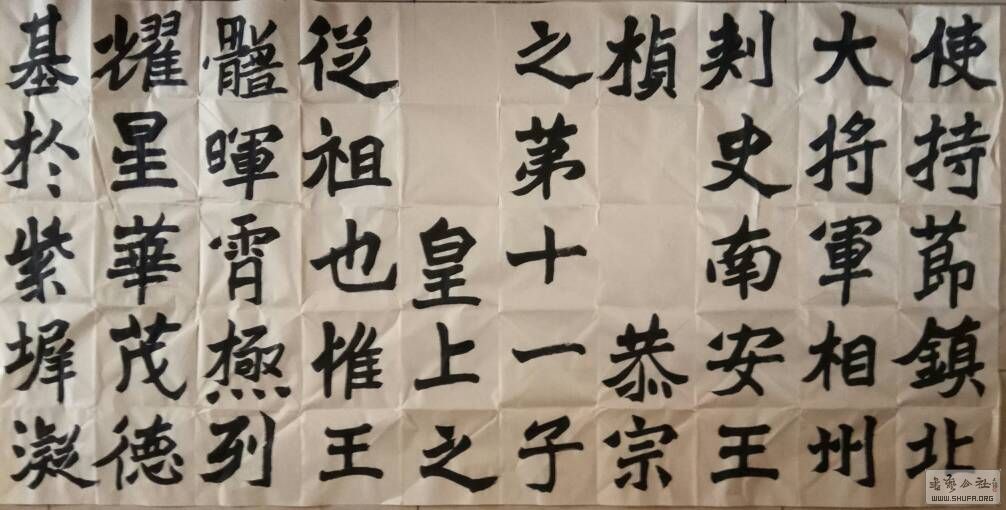 使持莭鎮北
大将軍相州
刾史南安王
楨恭宗
之苐十一子
皇上之
從祖也惟王
體暉霄極列
耀星華茂德
基於紫墀凝
书艺公社
WWW.SHUFA.ORG